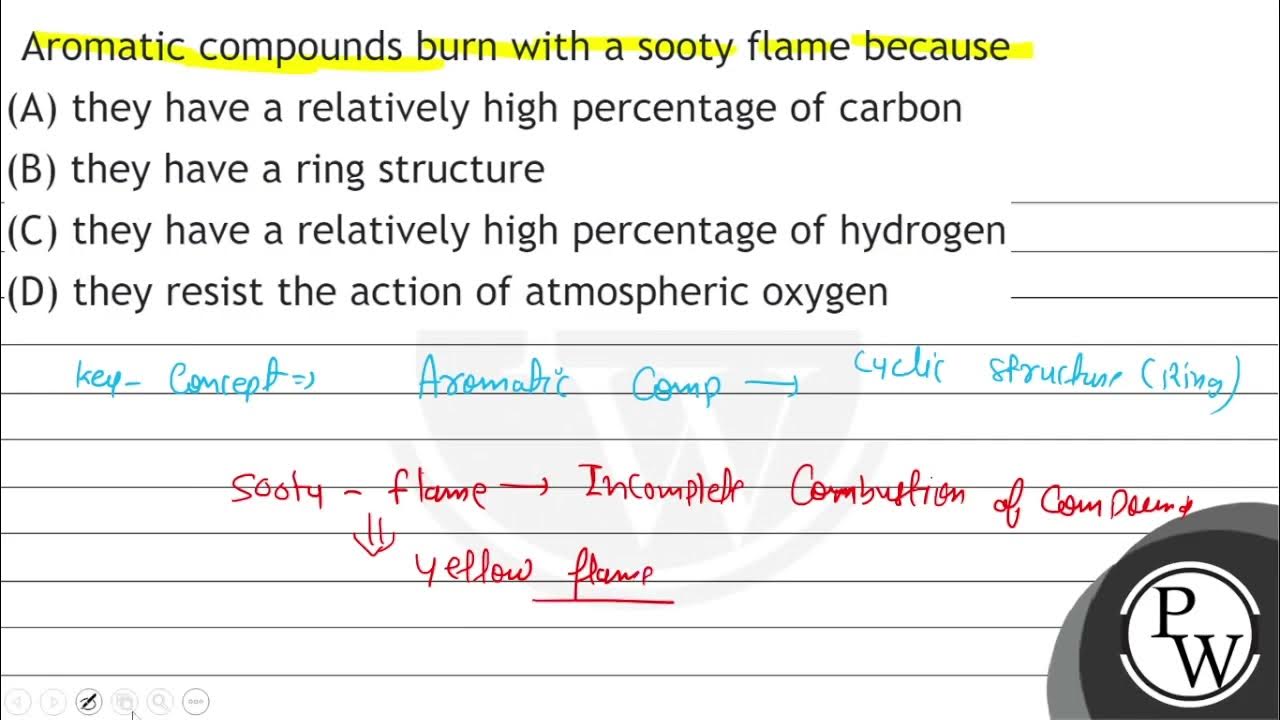 Aromatic compounds burn with a sooty flame because
(A) they have a relatively high percentage of carbon
(B) they have a ring structure
(C) they have a relatively high percentage of hydrogen
(D) they resist the action of atmospheric oxygen
key- Concept ⇒ Aromatic Comp → cyclic structure (Ring)
Sooty - flame → Incomplete Combustion of Compound
⇓
yellow flame
P
W